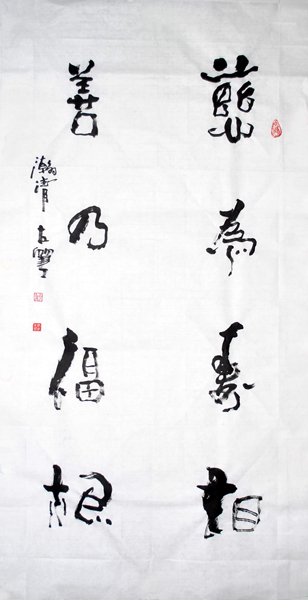 慈為壽相
善乃福根
瀚清